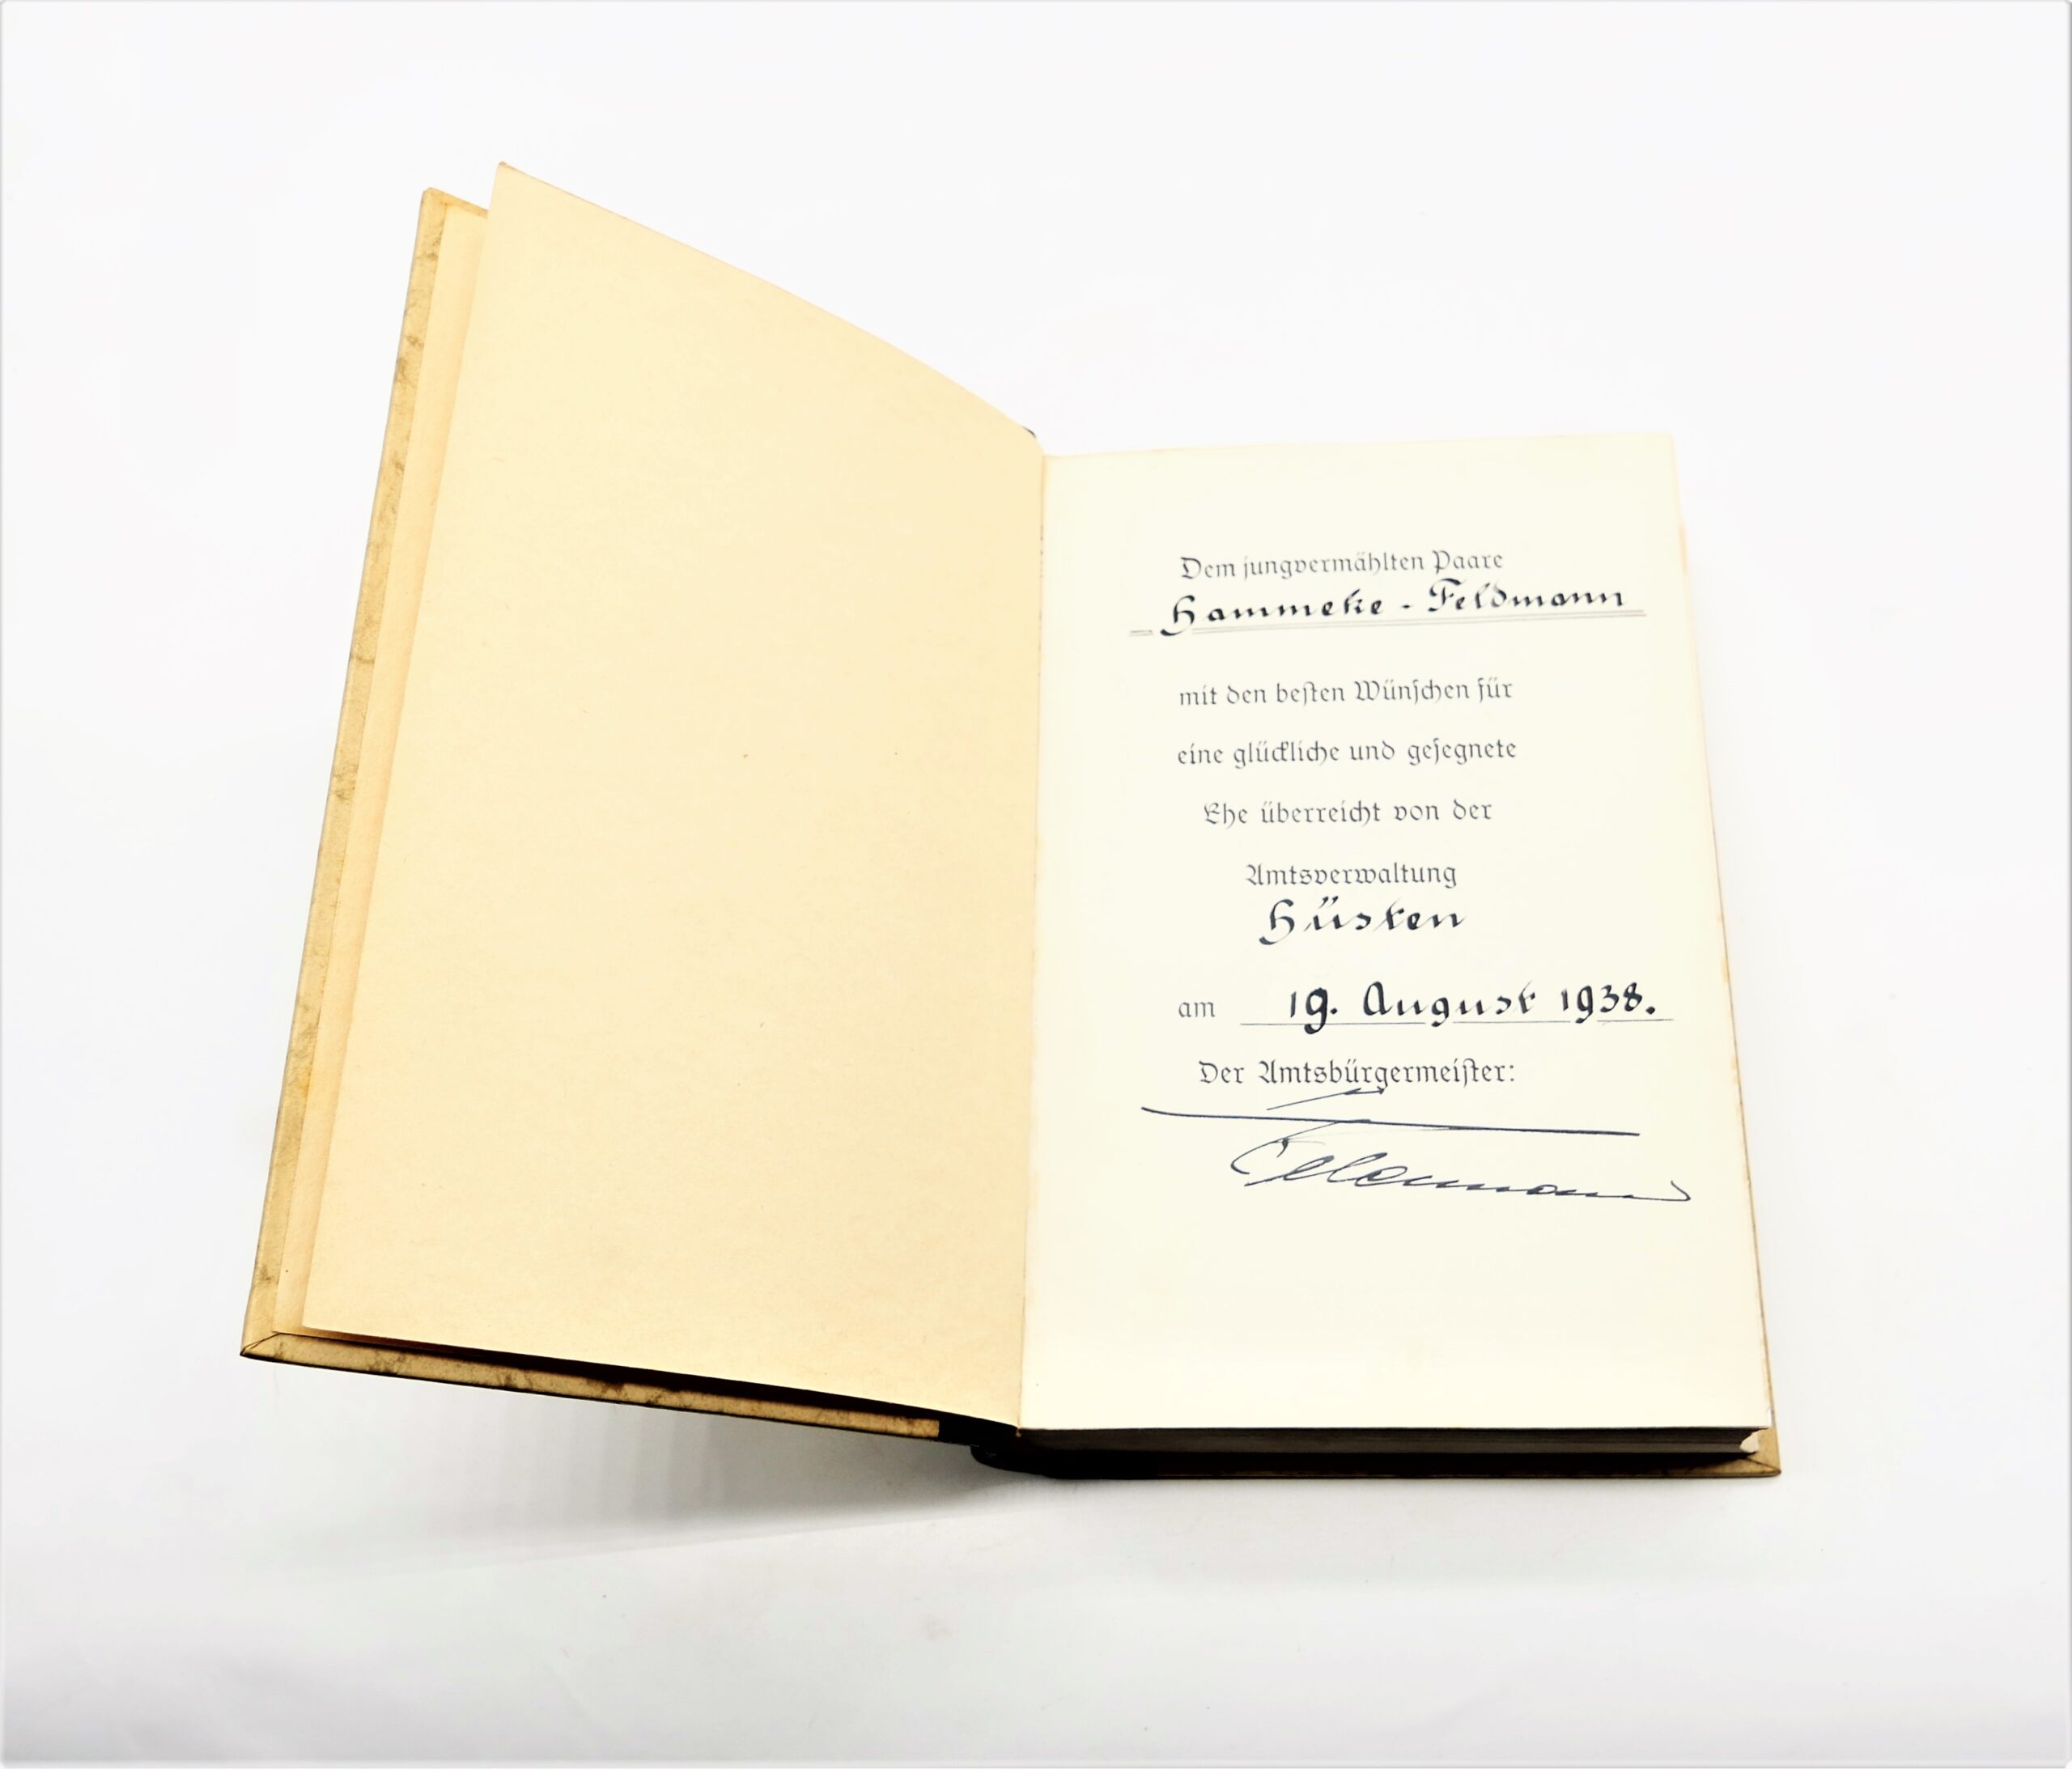 Dem jungvermählten Paare
Hammeke - Feldmann
mit den besten Wünschen für
eine glückliche und gesegnete
Ehe überreicht von der
Amtsverwaltung
Hüsten
am 19. August 1938.
Der Amtsbürgermeister: